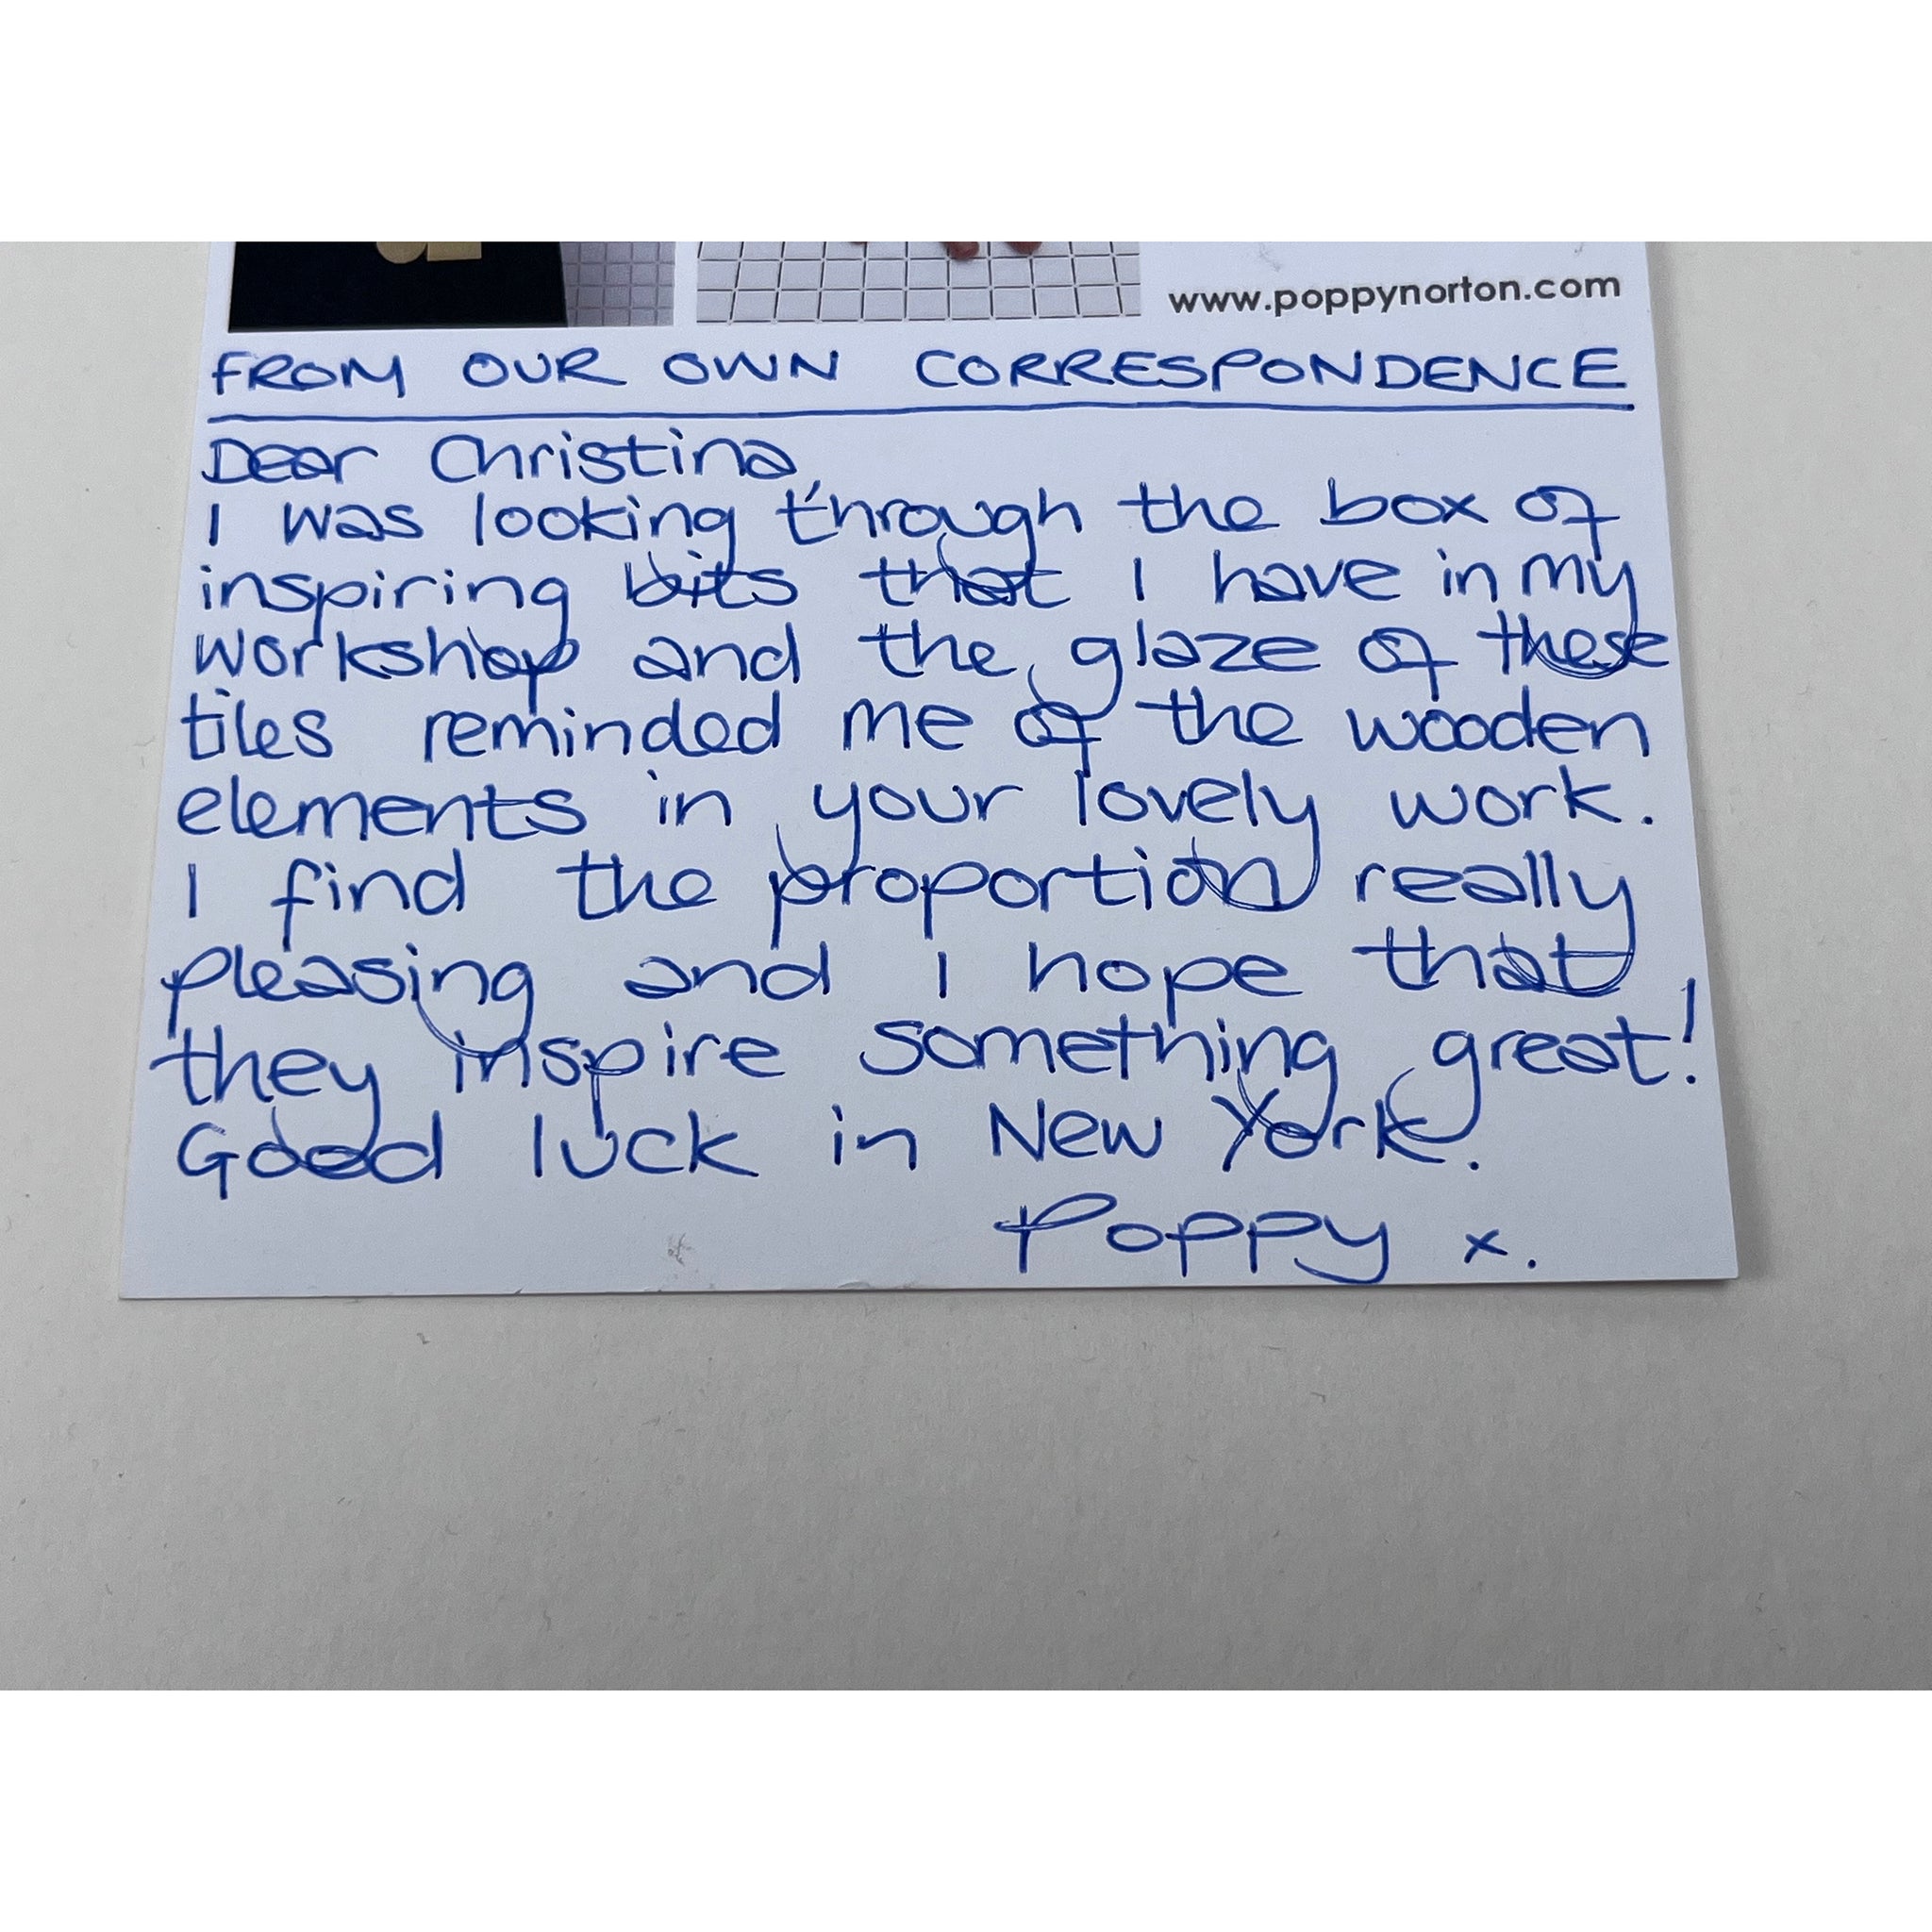 www.poppynorton.com
FROM OUR OWN CORRESPONDENCE
Dear Christina,
I was looking through the box of
inspiring bits that I have in my
workshop and the glaze of these
tiles reminded me of the wooden
elements in your lovely work.
I find the proportion really
pleasing and I hope that
they inspire something great!
Good luck in New York.
Poppy x.